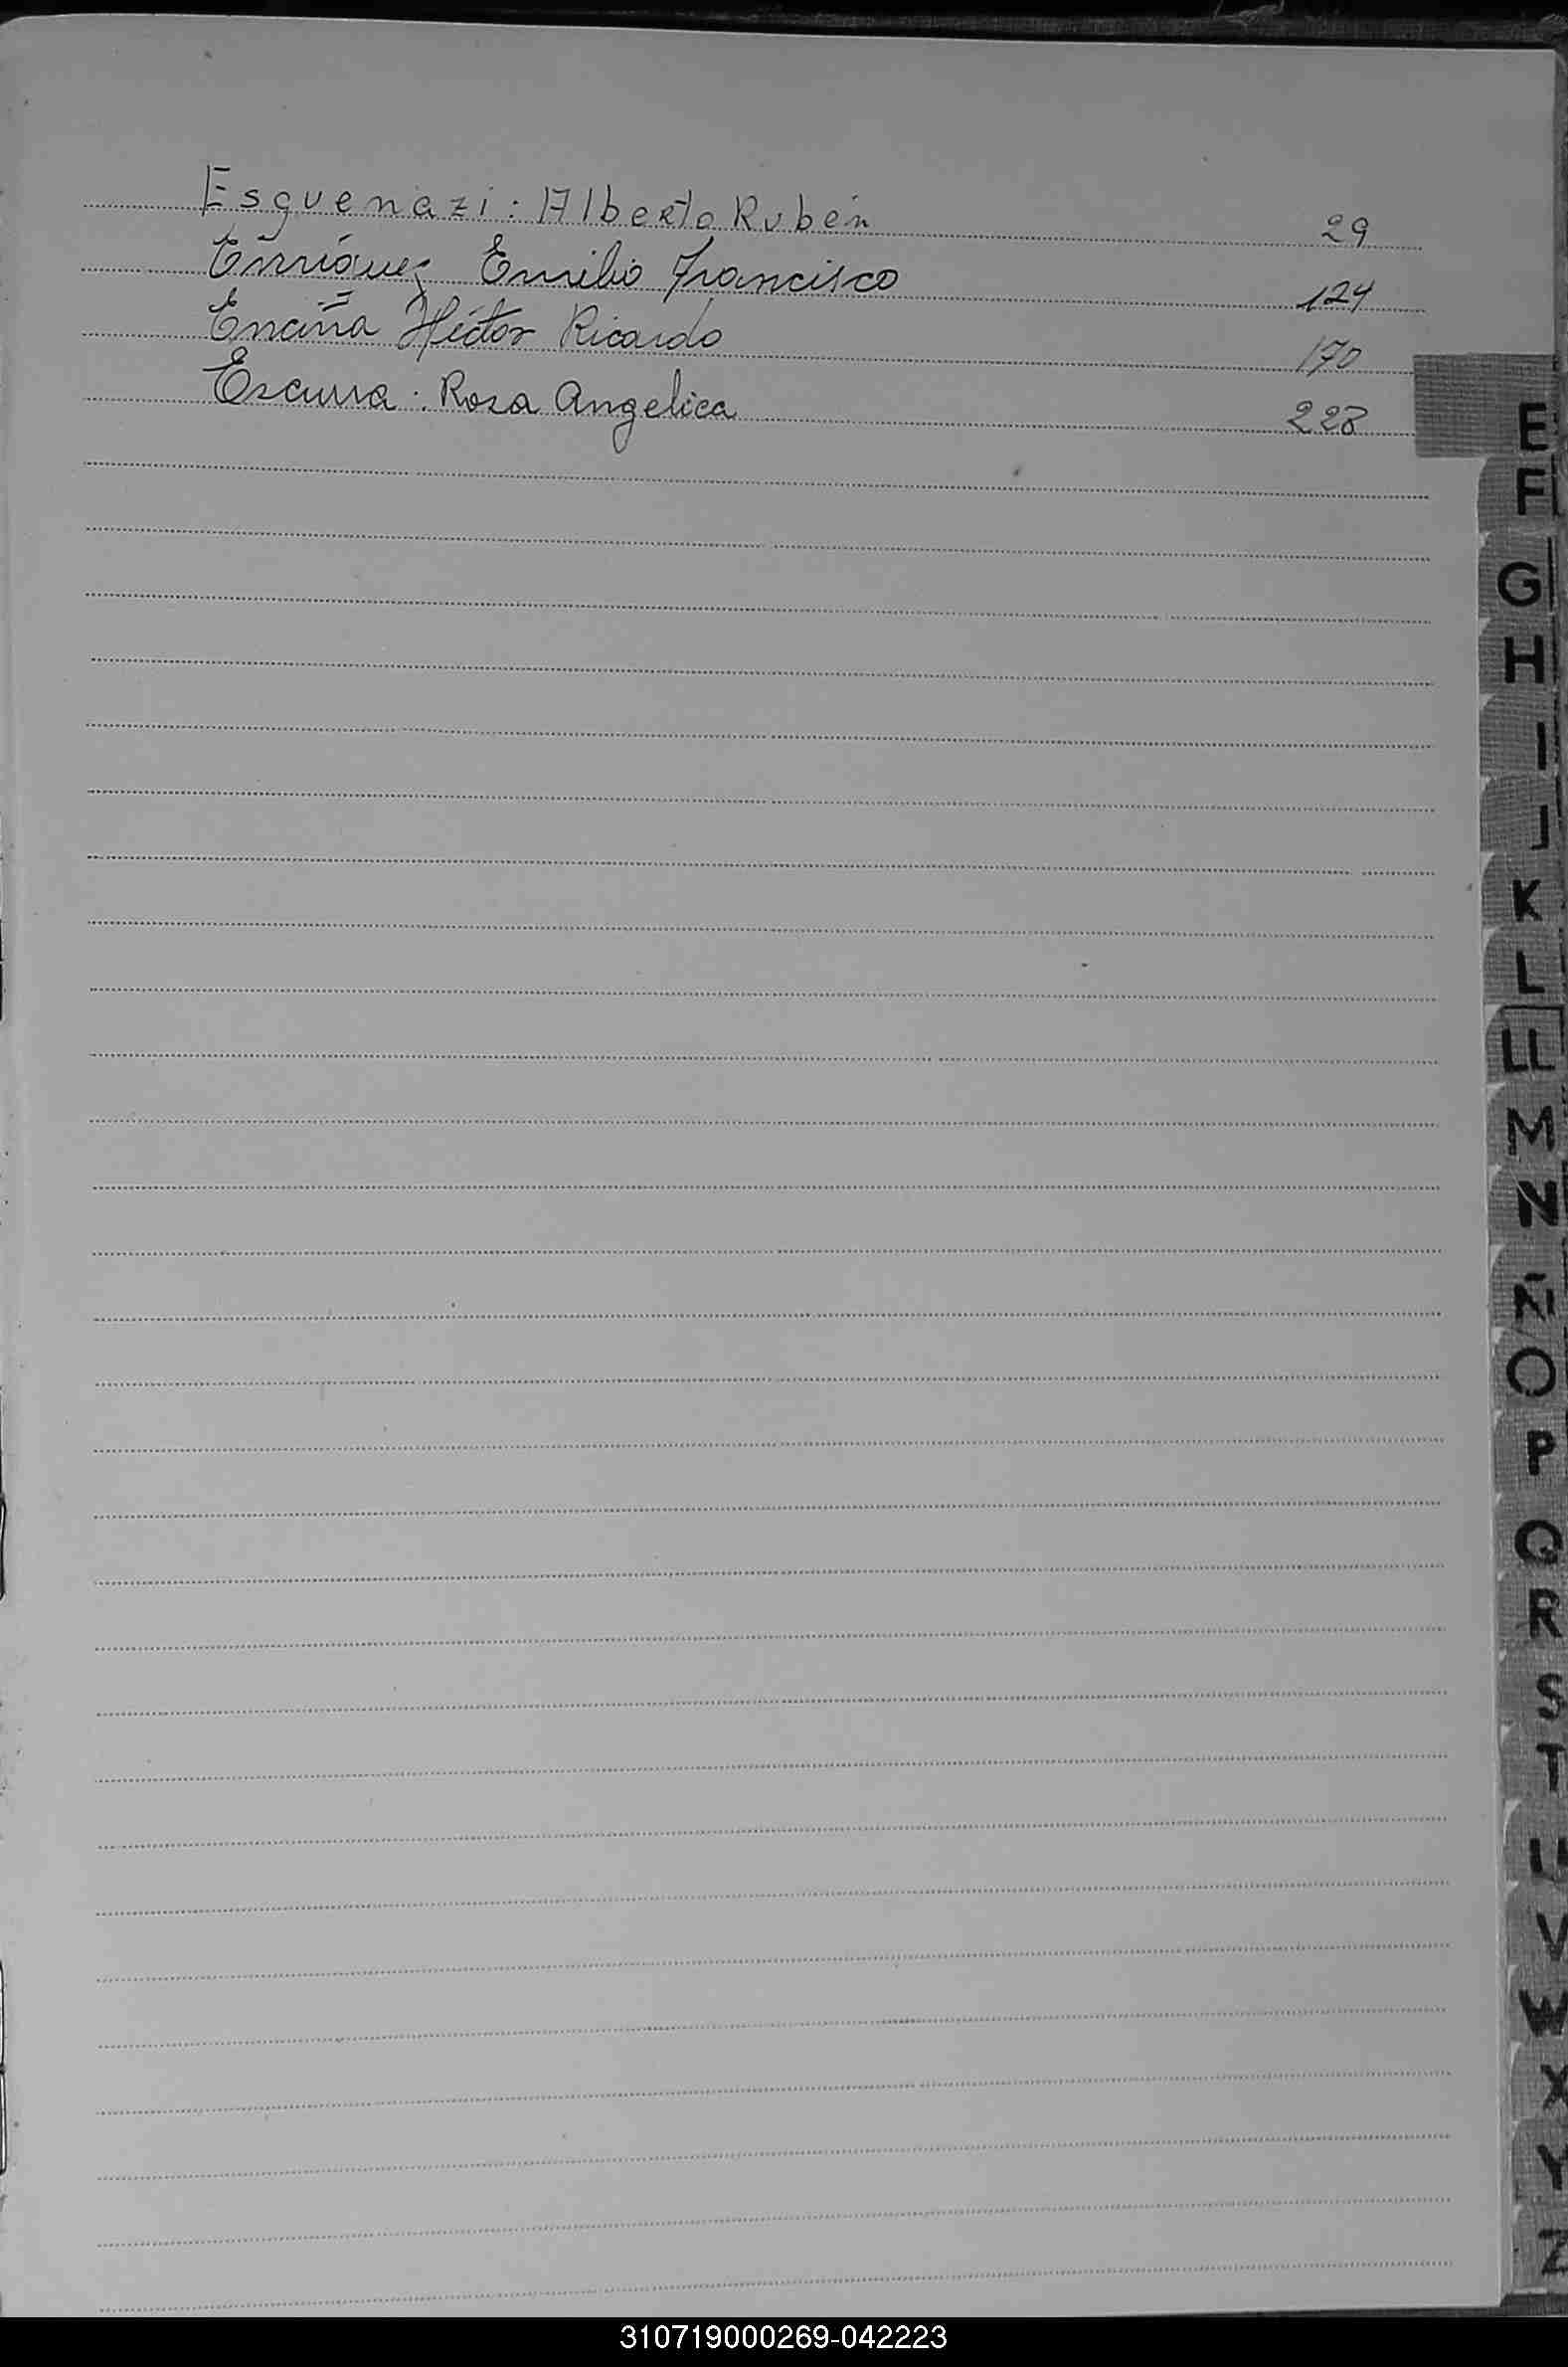 Esquenazi: Alberto Rubén 29
Enríquez Emilio Francisco 124
Enciña Héctor Ricardo 170
Escurra: Rosa Angelica 228
E
F
G
H
I
J
K
L
LL
M
N
Ñ
O
P
Q
R
S
T
U
V
W
X
Y
Z
310719000269-042223